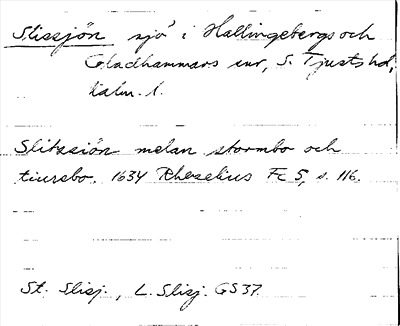 Slissjön sjö i Hallingebergs och
Gladhammars snr, S. Tjusts hd,
Kalm. l.
Slitssiön melan stormbo och
tiurebo. 1634 Rhezelius Fc 5, s. 116.
St. Slisj., L. Slisj. GS37